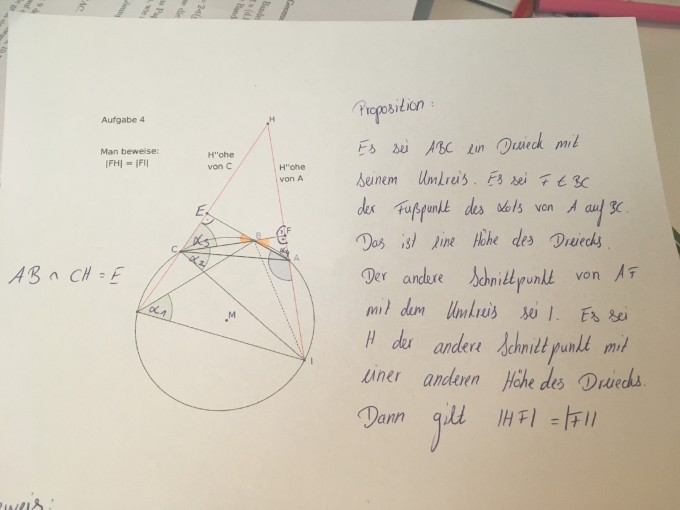 Aufgabe 4
Man beweise:
|FH| = |FI|
H
H"ohe
von C
H"ohe
von A
E
B
F
C
α3
α2
α4
A
α1
M
I
AB ∩ CH = E
Proposition:
Es sei ABC ein Dreieck mit
seinem Umkreis. Es sei F ∈ BC
der Fußpunkt des Lots von A auf BC.
Das ist eine Höhe des Dreiecks.
Der andere Schnittpunkt von AF
mit dem Umkreis sei I. Es sei
H der andere Schnittpunkt mit
einer anderen Höhe des Dreiecks.
Dann gilt |HF| = |FI|